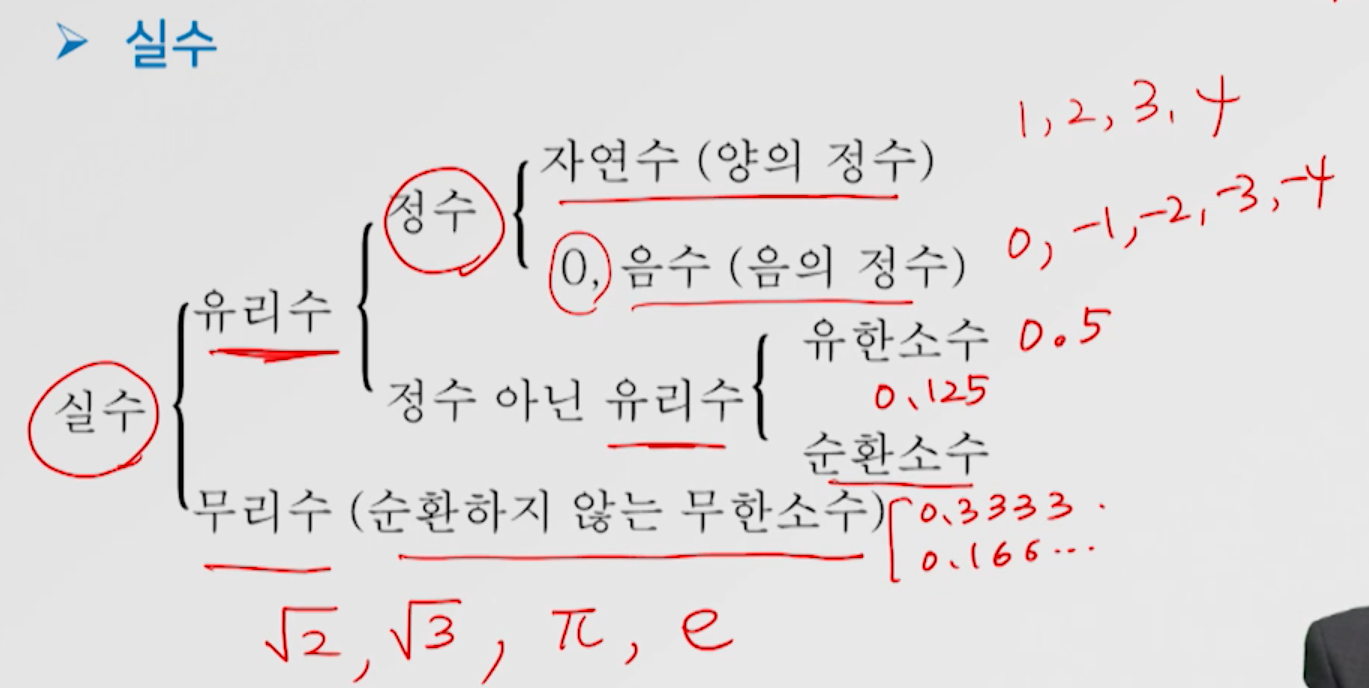 ➤ 실수
1, 2, 3, 4
자연수 (양의 정수)
정수
0, -1, -2, -3, -4
0, 음수 (음의 정수)
유리수
유한소수 0.5
정수 아닌 유리수
0.125
실수
순환소수
무리수 (순환하지 않는 무한소수)
0.3333.
0.166...
√2, √3, π, e